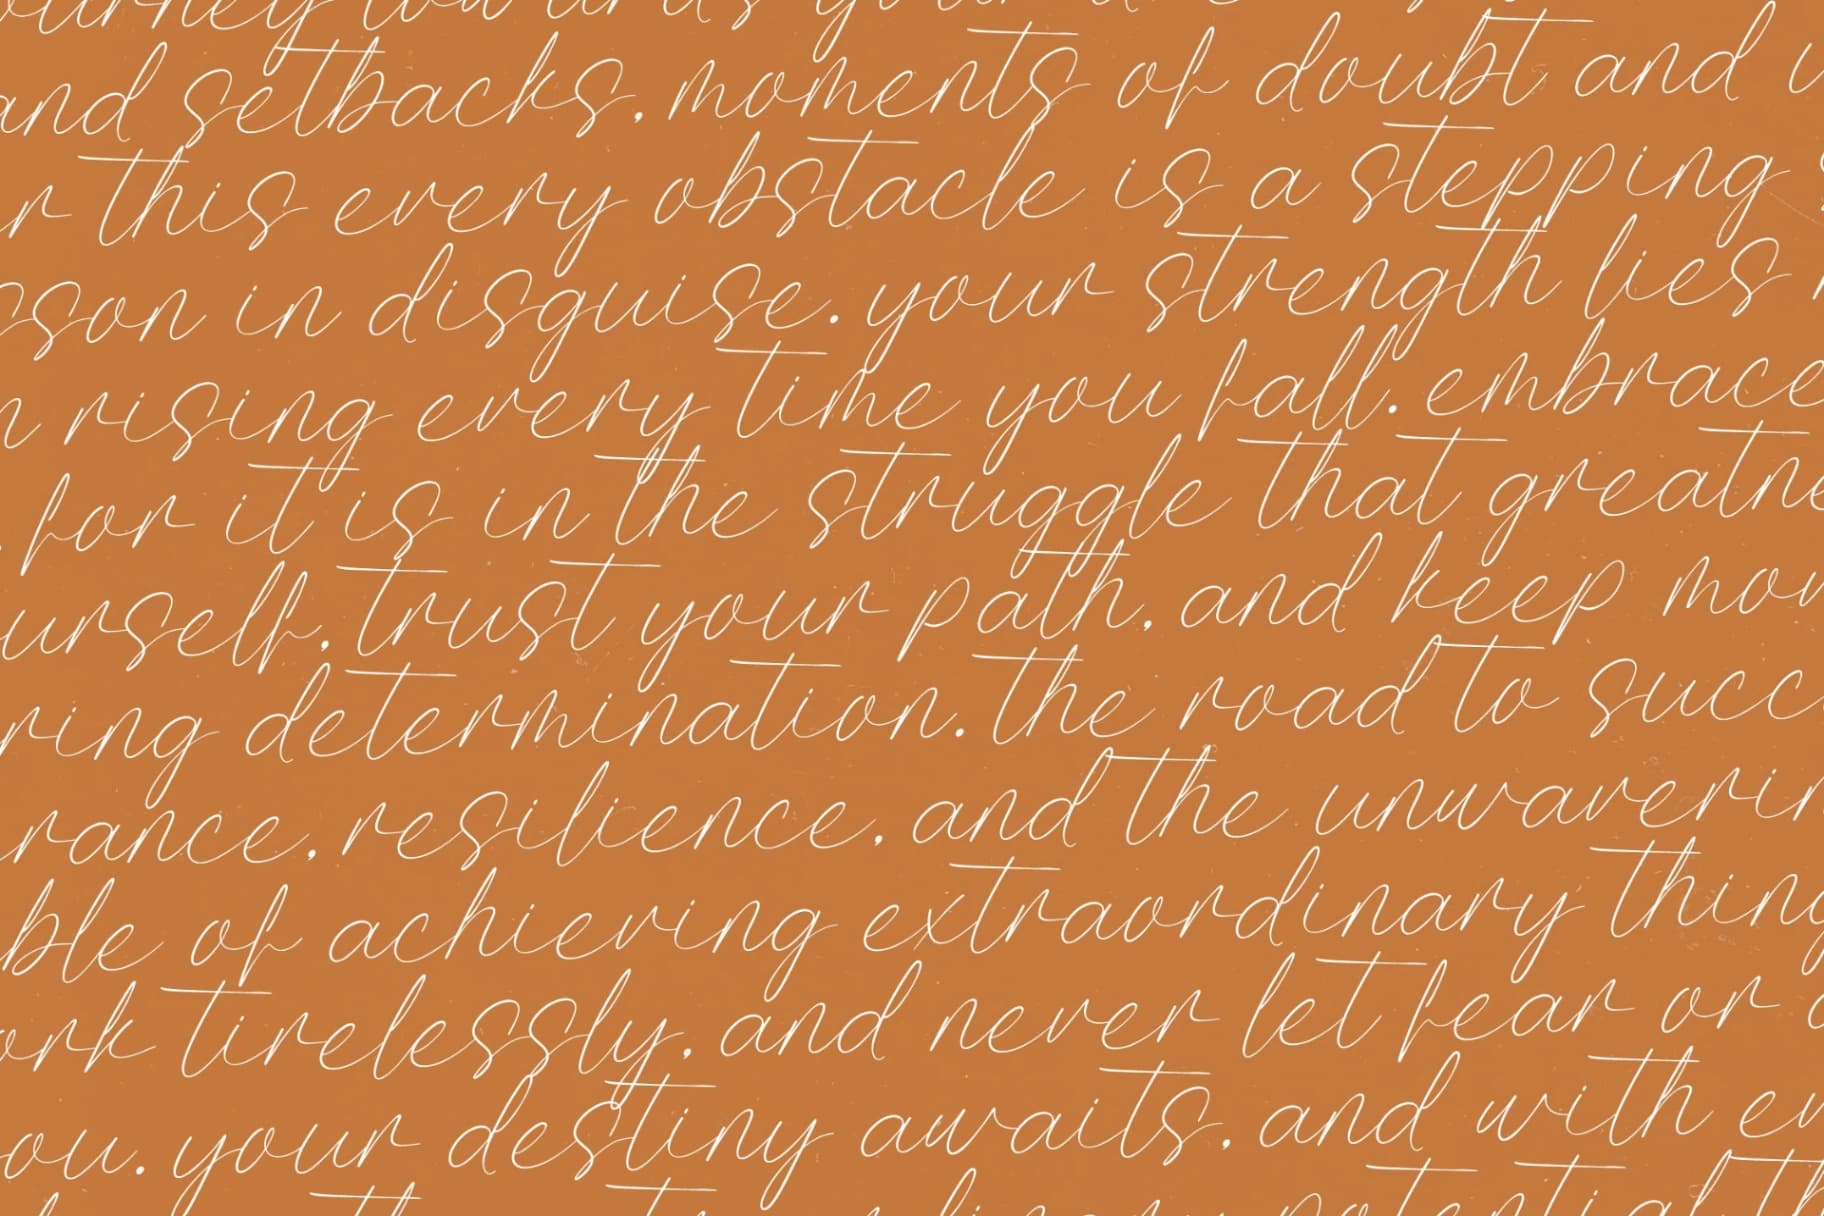 journey towards your
and setbacks, moments of doubt and
r this every obstacle is a stepping
sson in disguise. your strength lies
n rising every time you fall. embrace
. for it is in the struggle that greatne
urself, trust your path, and keep mov
ring determination. the road to succ
rance, resilience, and the unwaverin
ble of achieving extraordinary thing
ork tirelessly, and never let fear or
ou. your destiny awaits, and with ev
potential th